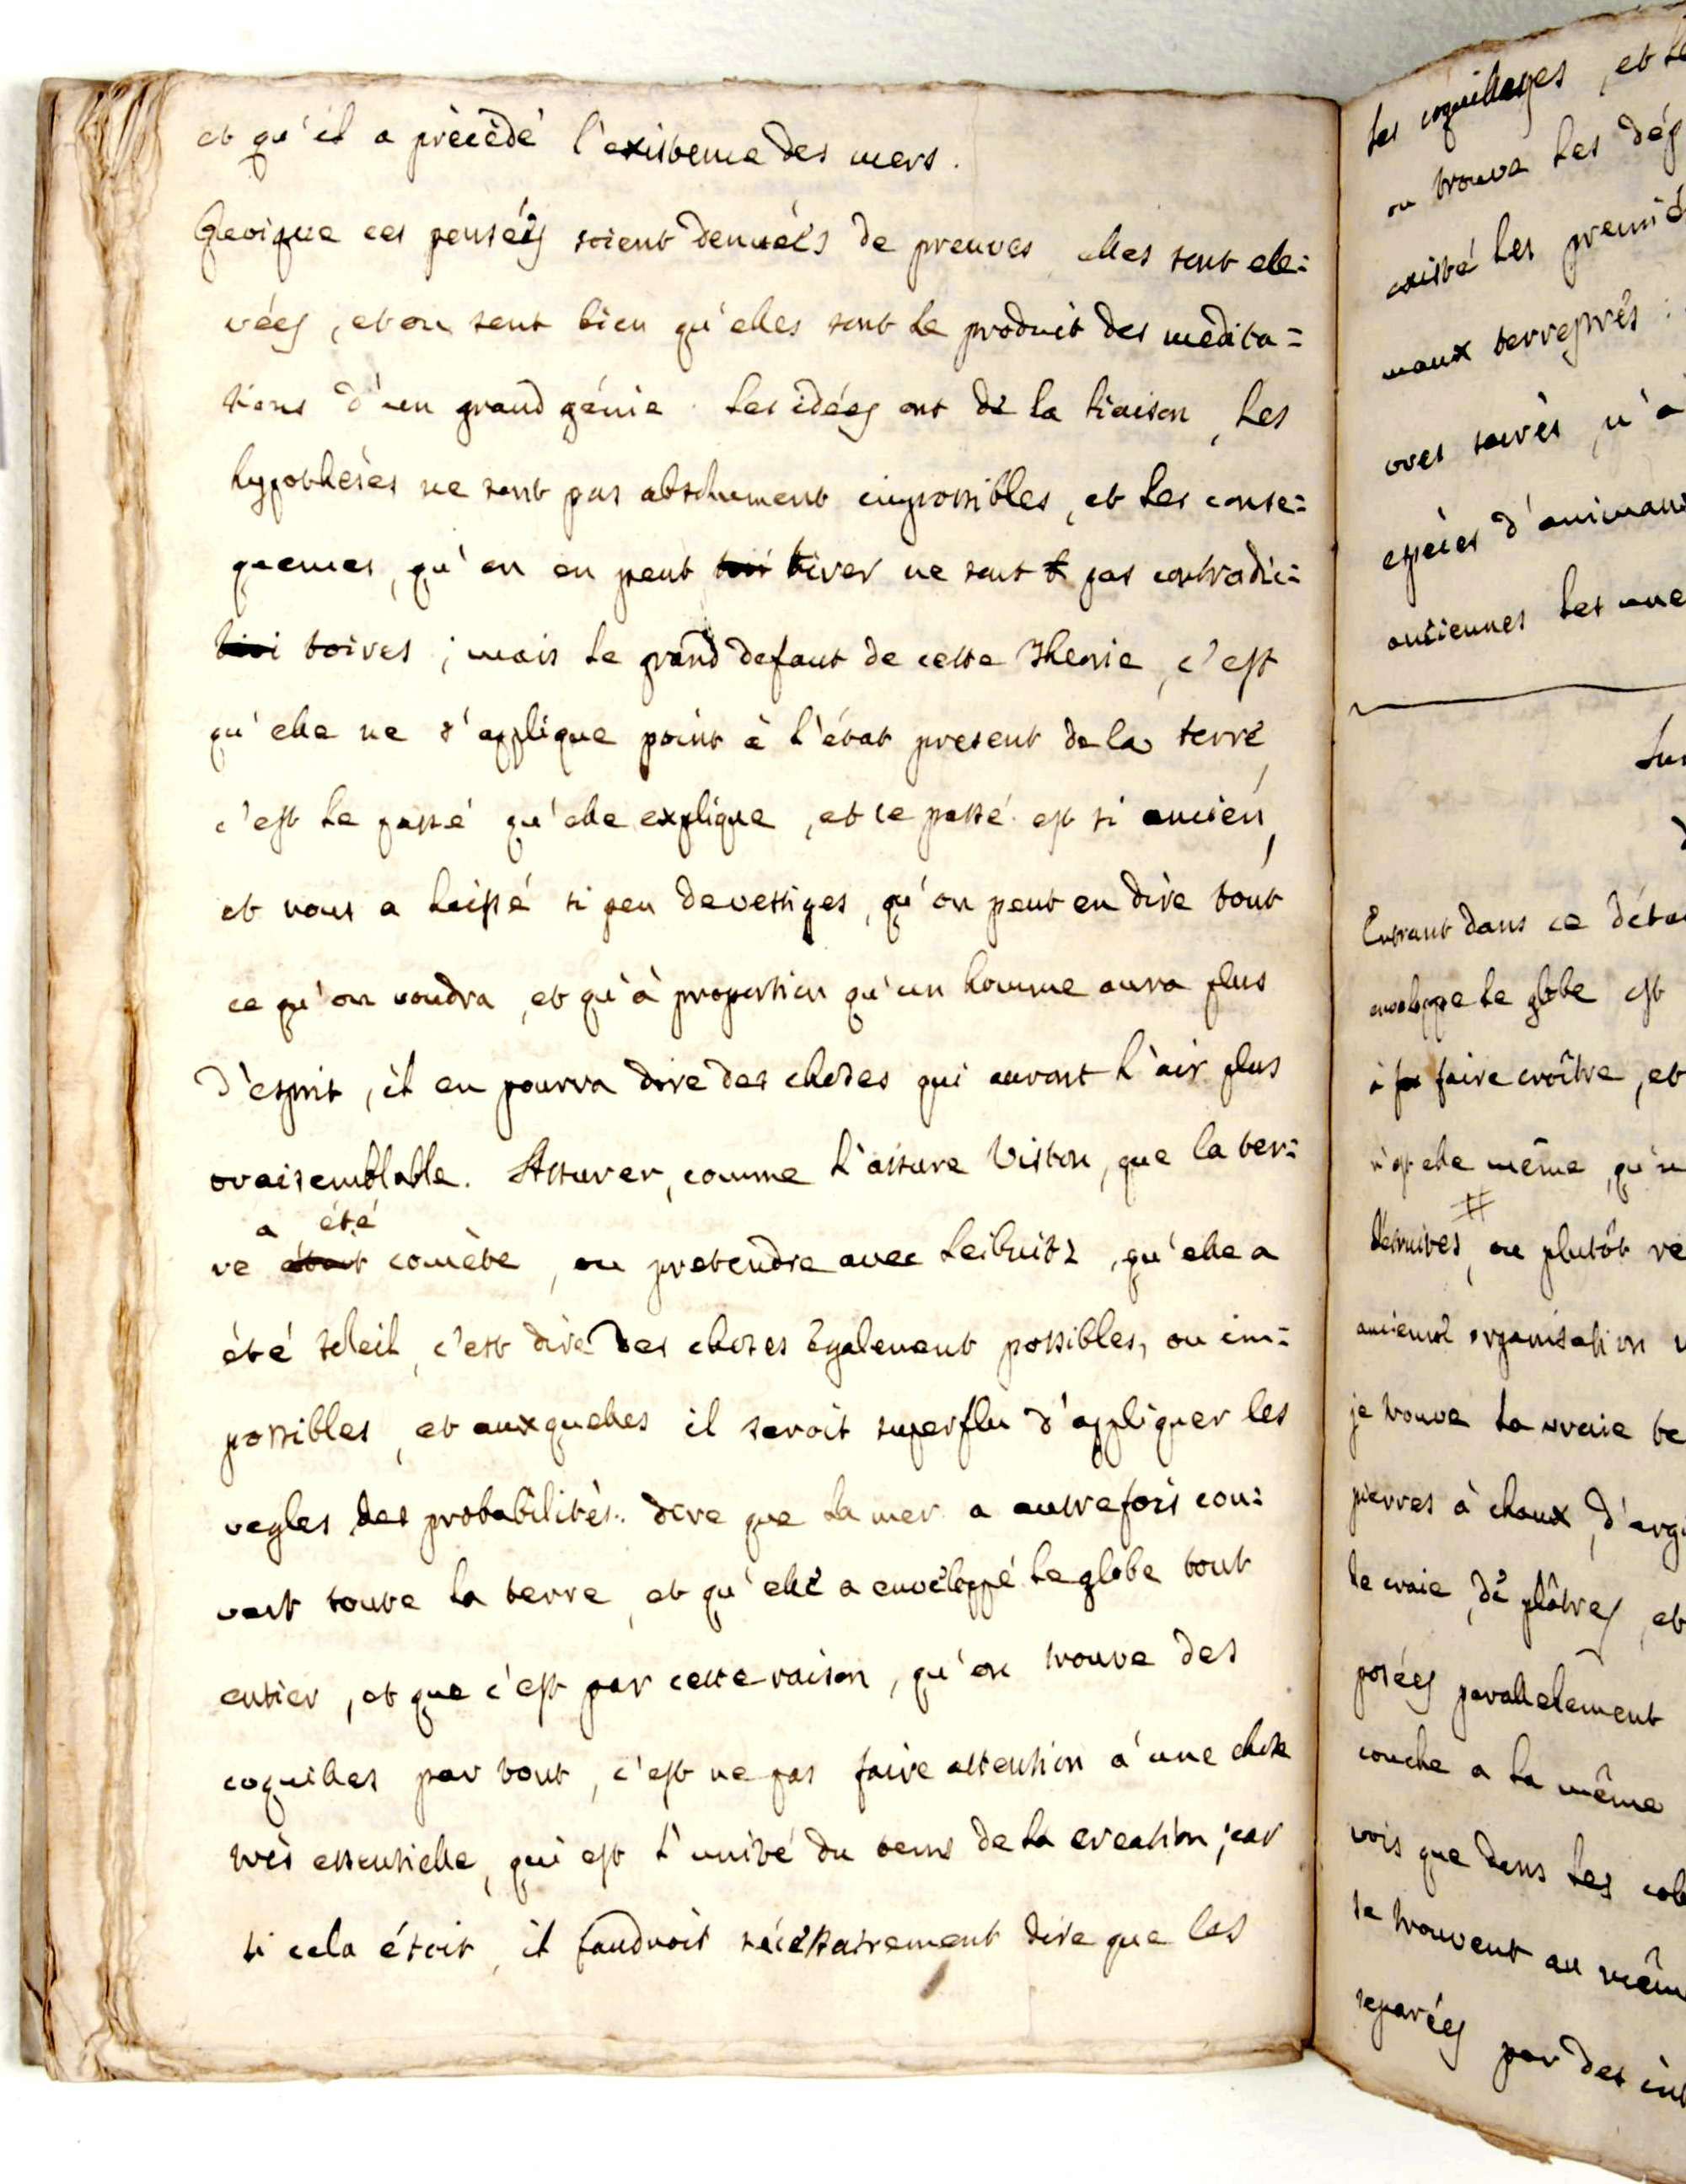 et qu'il a précédé l'existence des mers.
Quoique ces pensées soient denuées de preuves elles sont ele=
vées, et on sent bien qu'elles sont le produit des medita=
tions d'un grand génie. Les idées ont de la liaison, les
hypothèses ne sont pas absolument impossibles, et les conse=
quences, qu'on en peut tirer ne sont pas contradic=
toires ; mais le grand defaut de cette Theorie, c'est
qu'elle ne s'applique point à l'état present de la terre,
c'est le passé qu'elle explique, et ce passé est si ancien,
et nous a laissé si peu de vestiges, qu'on peut en dire tout
ce qu'on voudra, et qu'à proportion qu'un homme aura plus
d'esprit, il en pourra dire des choses qui auront l'air plus
vraisemblable. Assurer, comme l'assure Viston, que la ter=
a été
re était comète, ou pretendre avec Leibnitz, qu'elle a
été soleil, c'est dire des choses également possibles, ou im=
possibles, et auxquelles il seroit superflu d'appliquer les
regles des probabilités. dire que la mer a autrefois cou=
vert toute la terre, et qu'elle a enveloppé le globe tout
entier, et que c'est par cette raison, qu'on trouve des
coquilles par tout, c'est ne pas faire attention à une chose
très essentielle, qui est l'unité du tems de la creation ; car
si cela étoit, il faudroit nécéssairement dire que les
les coquillages, et le
on trouve les dég
existé les premié
maux terrestrés
vres sacrés, n'a
espèces d'animaux
anciennes les une
Sur
Entrant dans ce déta
enveloppe le globe est
à faire croître, et
n'est elle même, qu'u
détruites, ou plutôt re
ancienne organisation
je trouve la vraie te
pierres à chaux, d'argi
de craie, de plâtres, et
posées parallelement
couche a la même
vois que dans les col
se trouvent au même
separées par des int